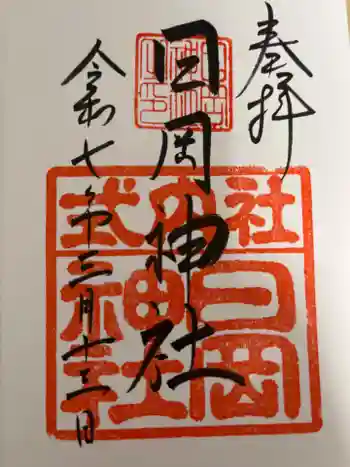 奉拝
日岡神社
令和七年三月十三日
式内社
日岡
神社